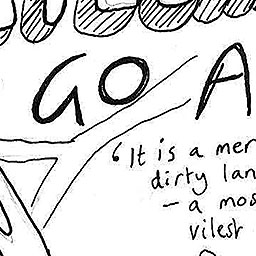 GO A
'It is a mer
dirty lan
- a mos
vilest